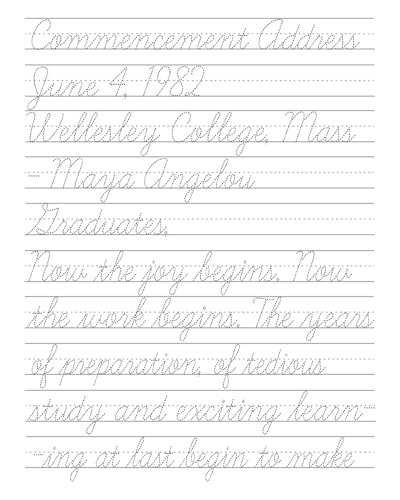 Commencement Address
June 4, 1982
Wellesley College, Mass
- Maya Angelou
Graduates,
Now the joy begins. Now
the work begins. The years
of preparation, of tedious
study and exciting learn-
-ing at last begin to make